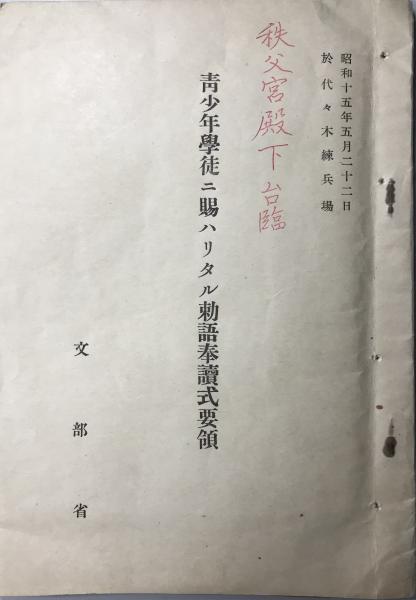 昭和十五年五月二十二日
於代々木練兵場
秩父宮殿下台臨
靑少年學徒ニ賜ハリタル勅語奉讀式要領
文部省